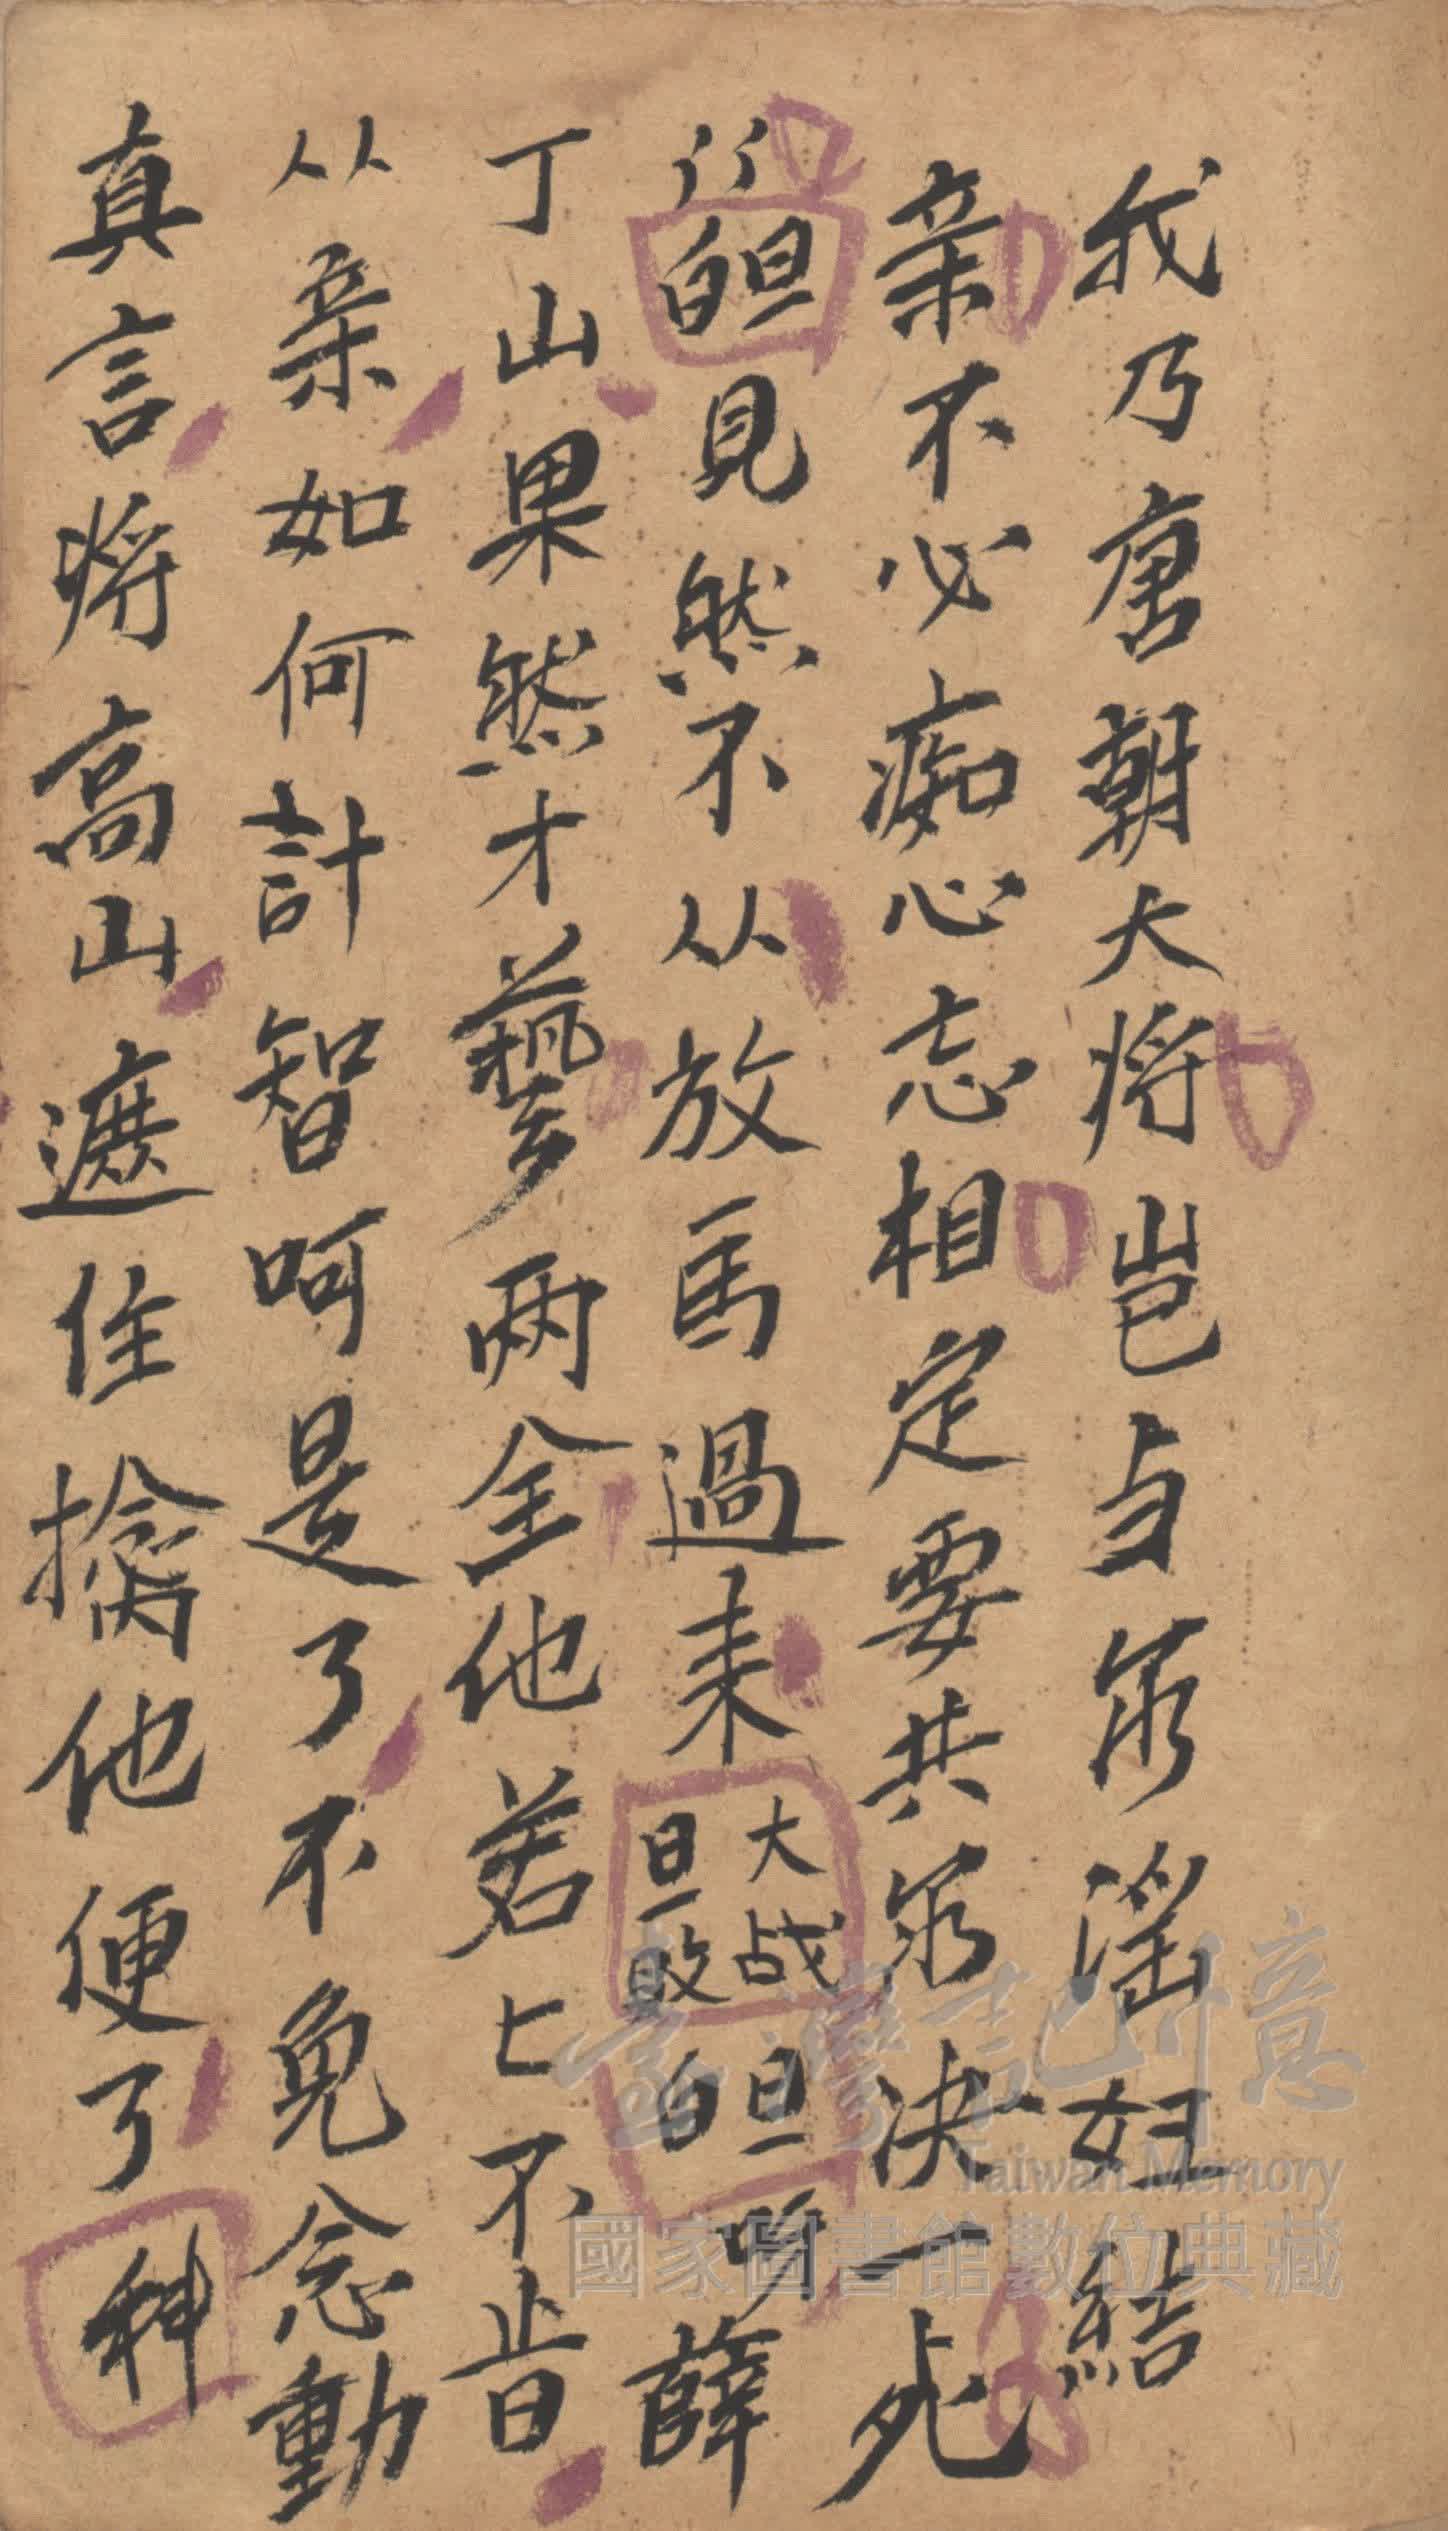 我乃唐朝大将岂与尔滛妇結
亲不必痴心忘相定要共尔决一死
白旦見然不从放馬過来大战旦敗白旦吓薛
丁山果然才藝兩全他若匕不肯
从亲如何計智呵是了不免念動
真言将高山遮住擒他便了科
臺灣記憶
Taiwan Memory
國家圖書館數位典藏